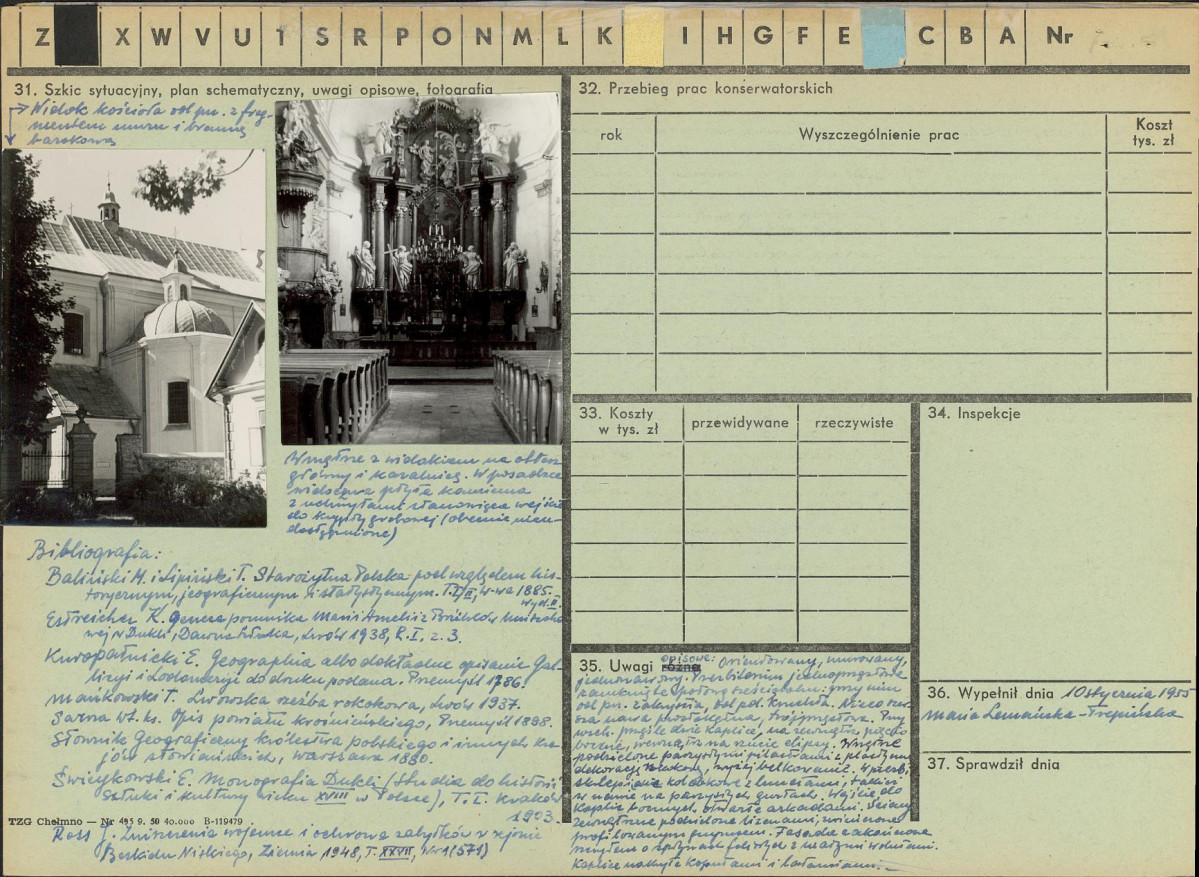 Z X W V U T S R P O N M L K I H G F E C B A Nr
31. Szkic sytuacyjny, plan schematyczny, uwagi opisowe, fotografia
Widok kościoła od pn. z frag-
mentem muru i bramą
barokową
Wnętrze z widokiem na ołtarz
główny i kazalnicę. W posadzce
widoczna płyta kamienna
z uchwytami stanowiąca wejście
do krypty grobowej (obecnie nieu-
dostępnione)
Bibliografia:
Baliński M. i Lipiński T. Starożytna Polska pod względem his-
torycznym, jeograficznym i statystycznym. T. II, W-wa 1885.
Wyd. II.
Estreicher K. Geneza pomnika Marii Amelii z Brühlów Mniszcho-
wej w Dukli, Dawna Sztuka, Lwów 1938, R. I, z. 3.
Kuropatnicki E. Geographia albo dokładne opisanie Gal-
licyi i Lodomeryi do druku podana. Przemyśl 1786.
Mańkowski T. Lwowska rzeźba rokokowa, Lwów 1937.
Sarna Wł. ks. Opis powiatu krośnieńskiego, Przemyśl 1898.
Słownik Geograficzny królestwa polskiego i innych kra-
jów słowiańskich, Warszawa 1880.
Świeykowski E. Monografia Dukli (Studia do historii
sztuki i kultury wieku XVIII w Polsce), T. I. Kraków
1903.
TZG Chełmno — Nr 495 9. 50 40.000 B-119479
Ross J. Zniszczenia wojenne i ochrona zabytków w rejonie
Beskidu Niskiego, Ziemia 1948, T. XXVII, Nr 1 (571)
32. Przebieg prac konserwatorskich
rok
Wyszczególnienie prac
Koszt
tys. zł
33. Koszty
w tys. zł
przewidywane
rzeczywiste
34. Inspekcje
35. Uwagi różne opisowe: Orientowany, murowany,
jednonawowy. Prezbiterium jednoprzęsłowe
zamknięte; przy nim
od pn. zakrystia, od pd. kruchta. Nieco szer-
sza nawa prostokątna, trójprzęsłowa. Przy
wsch. przęśle dwie kaplice, na zewnątrz
wewnątrz na rzucie elipsy. Wnętrze
podzielone parzystymi pilastrami z
dekoracją, wyżej belkowanie. W prezb.
sklepienie kolebkowe z lunetami, takież
w nawie na parzystych gurtach. Wejście do
kaplic bocznych otwarte arkadami. Ściany
zewnętrzne podzielone lizenami, zwieńczone
profilowanym gzymsem. Fasada zakończona
szczytem o spływach falistych z
Kaplice nakryte kopułami z latarniami.
36. Wypełnił dnia 10 stycznia 1955
Maria Lemańska-Trepińska
37. Sprawdził dnia